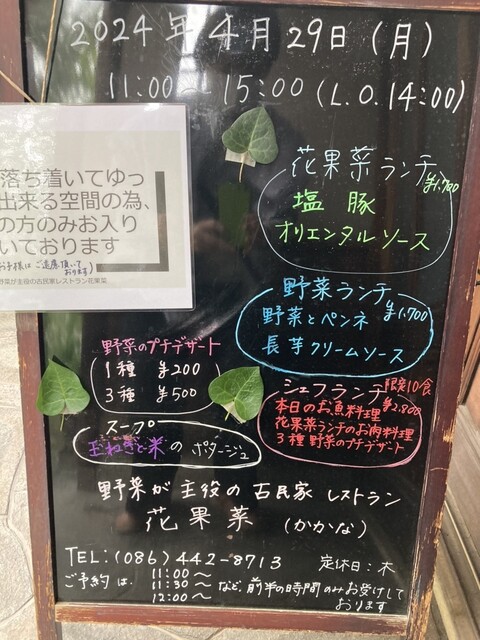 2024年4月29日(月)
11:00～15:00(L.O.14:00)
落ち着いてゆっ
出来る空間の為、
の方のみお入り
いております
お子様はご遠慮頂いて
おります)
野菜が主役の古民家レストラン花果菜
花果菜ランチ ¥1,700
塩豚
オリエンタルソース
野菜ランチ ¥1,700
野菜とペンネ
長芋クリームソース
野菜のプチデザート
1種 ¥200
3種 ¥500
シェフランチ 限定10食
¥2,800
本日のお魚料理
花果菜ランチのお肉料理
3種野菜のプチデザート
スープ
玉ねぎと米のポタージュ
野菜が主役の古民家レストラン
花果菜 (かかな)
TEL:(086)442-8713 定休日:木
ご予約は、11:00～
11:30～
12:00～
など、前半の時間のみお受けして
おります